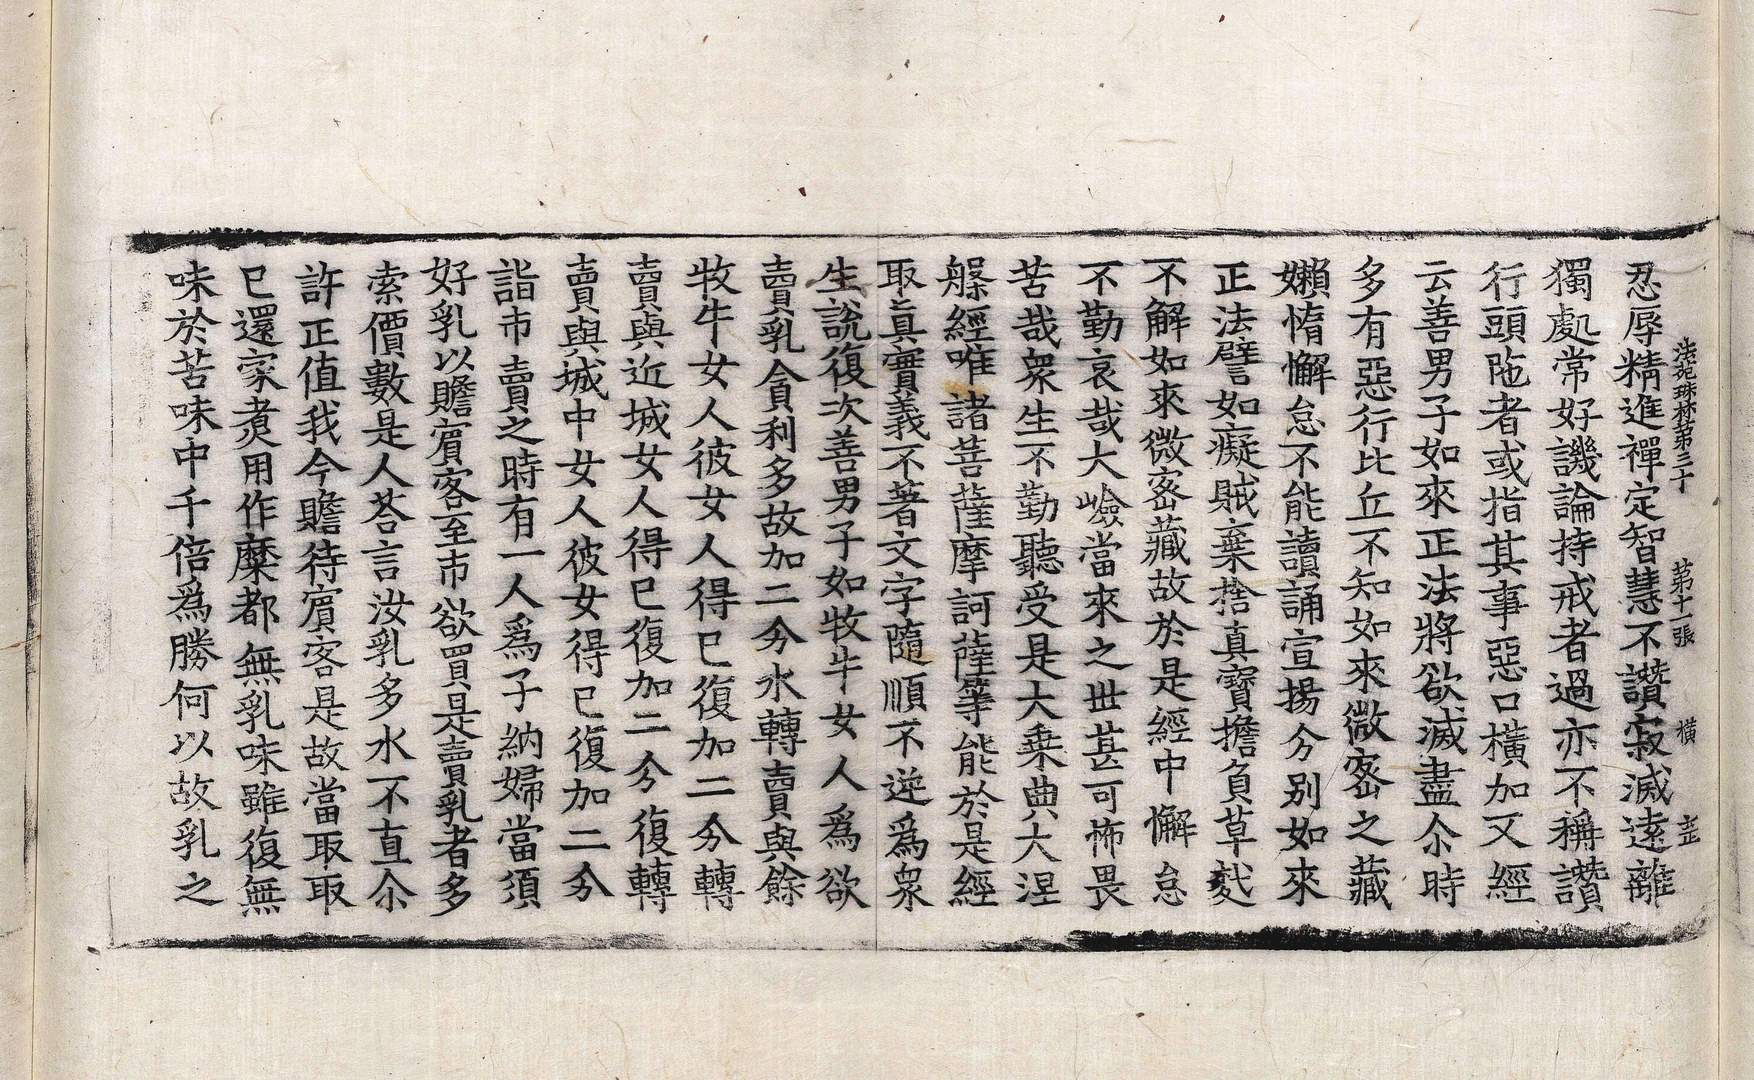 法苑珠林第三十　第十一張　横　㱏
忍辱精進禪定智慧不讚寂滅遠離
獨處常好譏論持戒者過亦不稱讚
行頭陁者或指其事惡口橫加又經
云善男子如來正法將欲滅盡尒時
多有惡行比丘不知如來微密之藏
嬾惰懈怠不能讀誦宣揚分别如來
正法譬如癡賊棄捨真寶擔負草䴬
不解如來微密藏故於是經中懈怠
不勤哀哉大嶮當來之世甚可怖畏
苦哉衆生不勤聽受是大乗典大涅
槃經唯諸菩薩摩訶薩等能於是經
取真實義不著文字隨順不逆爲衆
生說復次善男子如牧牛女人爲欲
賣乳貪利多故加二分水轉賣與餘
牧牛女人彼女人得已復加二分轉
賣與近城女人得已復加二分復轉
賣與城中女人彼女得已復加二分
詣市賣之時有一人爲子納婦當須
好乳以贍賓客至市欲買是賣乳者多
索價數是人荅言汝乳多水不直尒
許正值我今贍待賓客是故當取取
已還家煑用作糜都無乳味雖復無
味於苦味中千倍爲勝何以故乳之